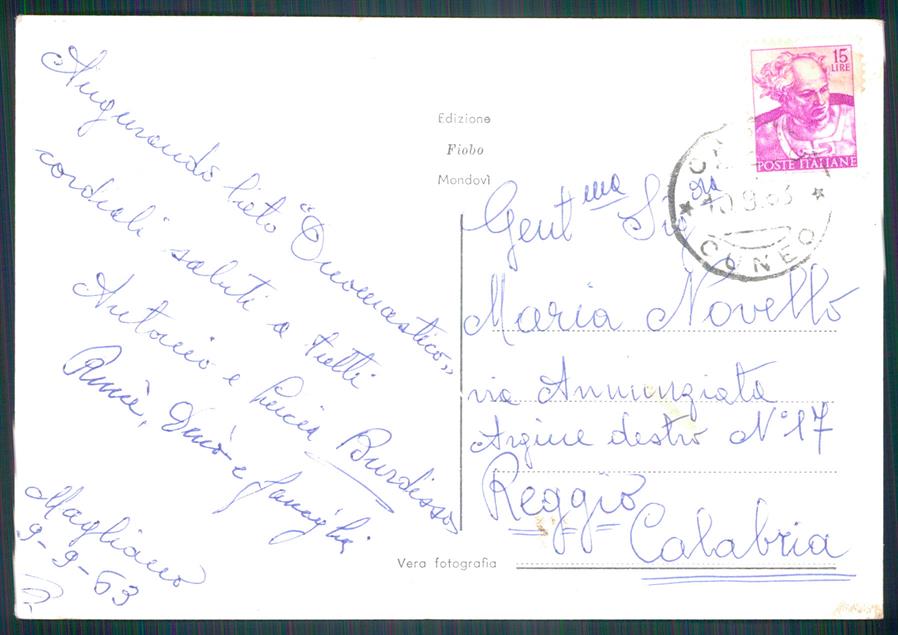 Augurando lieto "Onomastico"
cordiali saluti a tutti
Antonio e Lucia Burdisso
e famiglia
Magliano
9-9-63
Edizione
Fiobo
Mondovì
Vera fotografia
15
LIRE
POSTE ITALIANE
10.9.63
CUNEO
Gent ma Sig ra
Maria Novello
via Annunziata
Argine destro N° 17
Reggio
Calabria